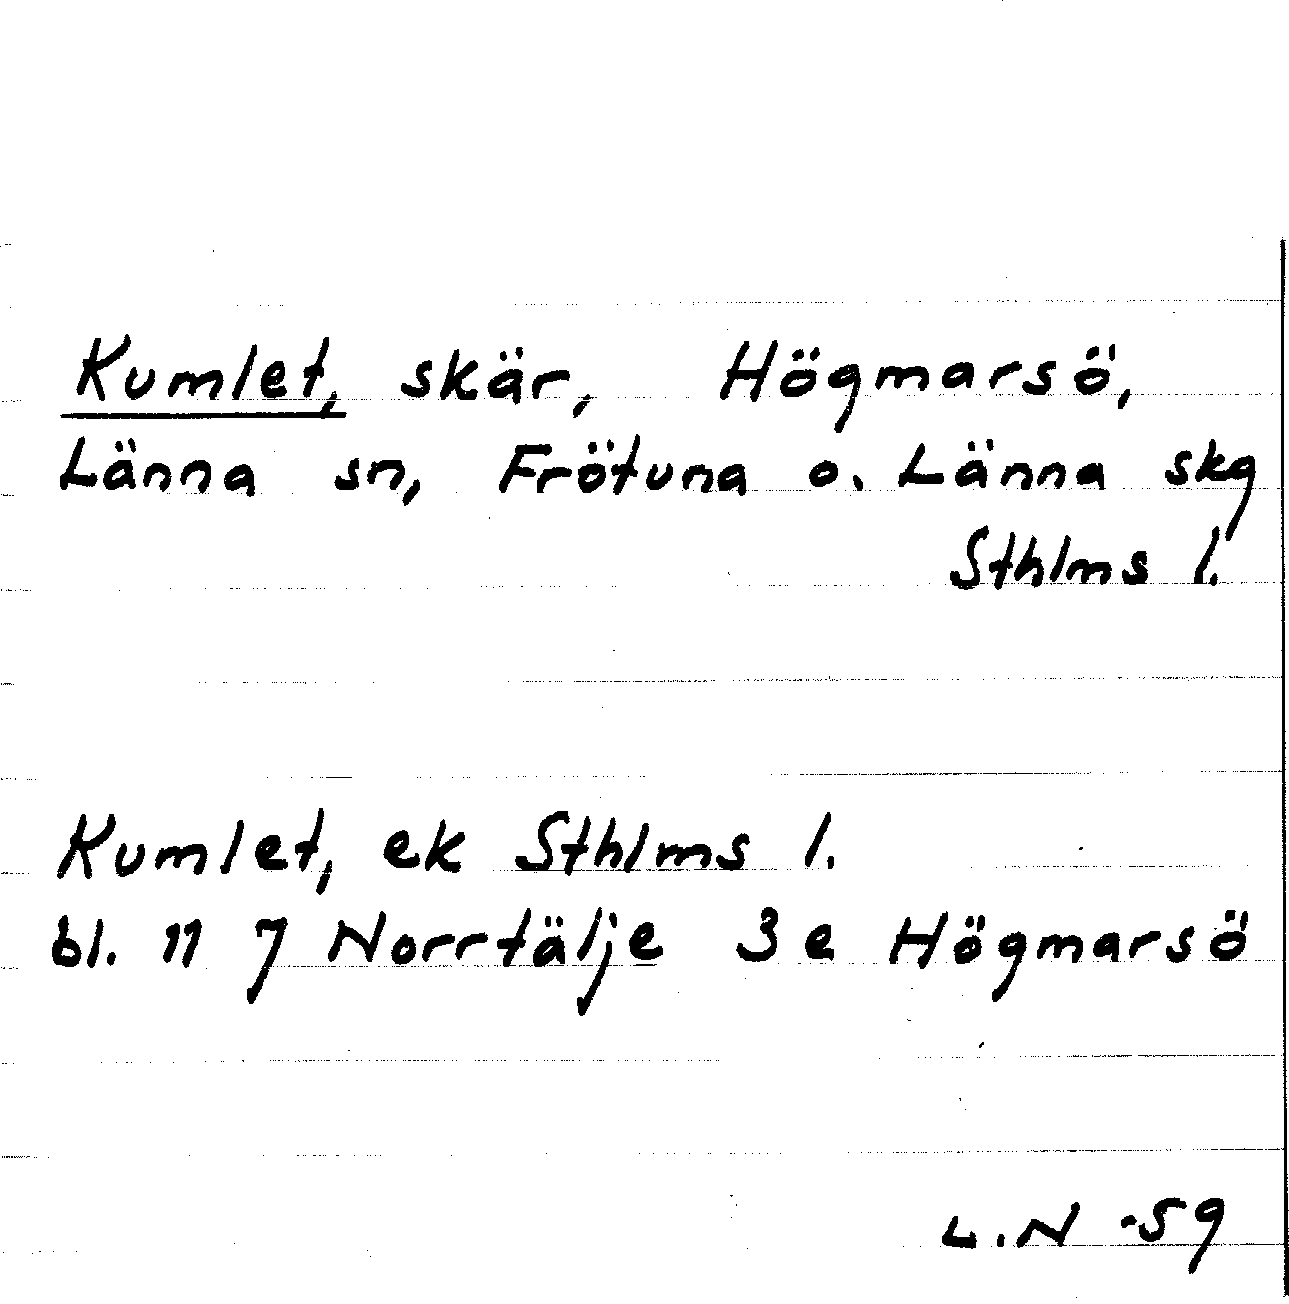 Kumlet, skär, Högmarsö,
Länna sn, Frötuna o. Länna skg
Sthlms l.
Kumlet, ek Sthlms l.
bl. 11 J Norrtälje 3e Högmarsö
L.N -59